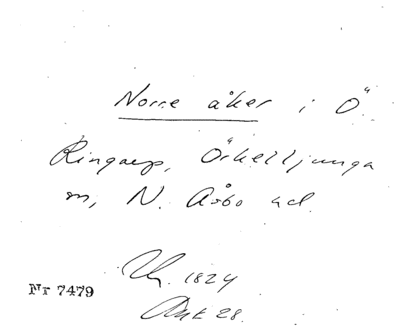 Norre åker i Ö.
Ringarp, Örkelljunga
sn, N. Åsbo hd.
Uh. 1824
Akt 28.
Nr 7479